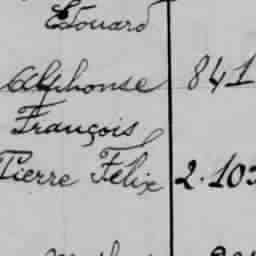 Edouard
Alphonse 841
François
Pierre Félix 2.103